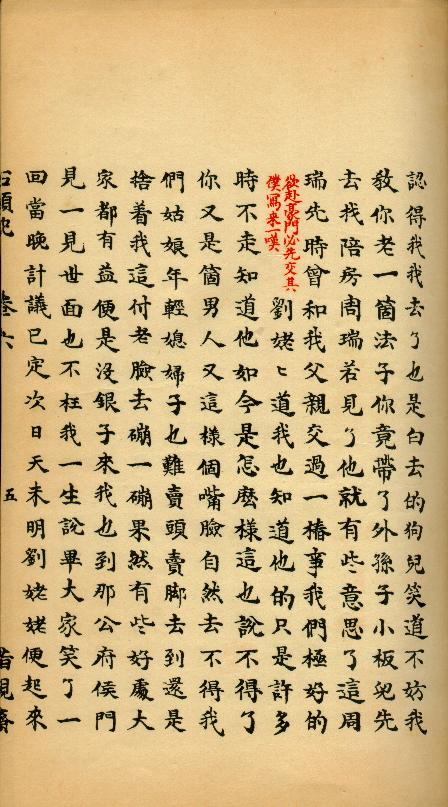 認得我我去了也是白去的狗兒笑道不妨我
教你老一箇法子你竟帶了外孫子小板兒先
去找陪房周瑞若見了他就有些意思了這周
瑞先時曾和我父親交過一樁事我們極好的
欲赴豪門必先交其
僕寫來一嘆
劉姥〻道我也知道他的只是許多
時不走知道他如今是怎麽樣這也說不得了
你又是箇男人又這樣個嘴臉自然去不得我
們姑娘年輕媳婦子也難賣頭賣脚去到還是
捨着我這付老臉去磞一磞果然有些好處大
家都有益便是没銀子來我也到那公府侯門
見一見世面也不枉我一生說畢大家笑了一
回當晚計議已定次日天未明劉姥姥便起來
石頭記 卷六 五